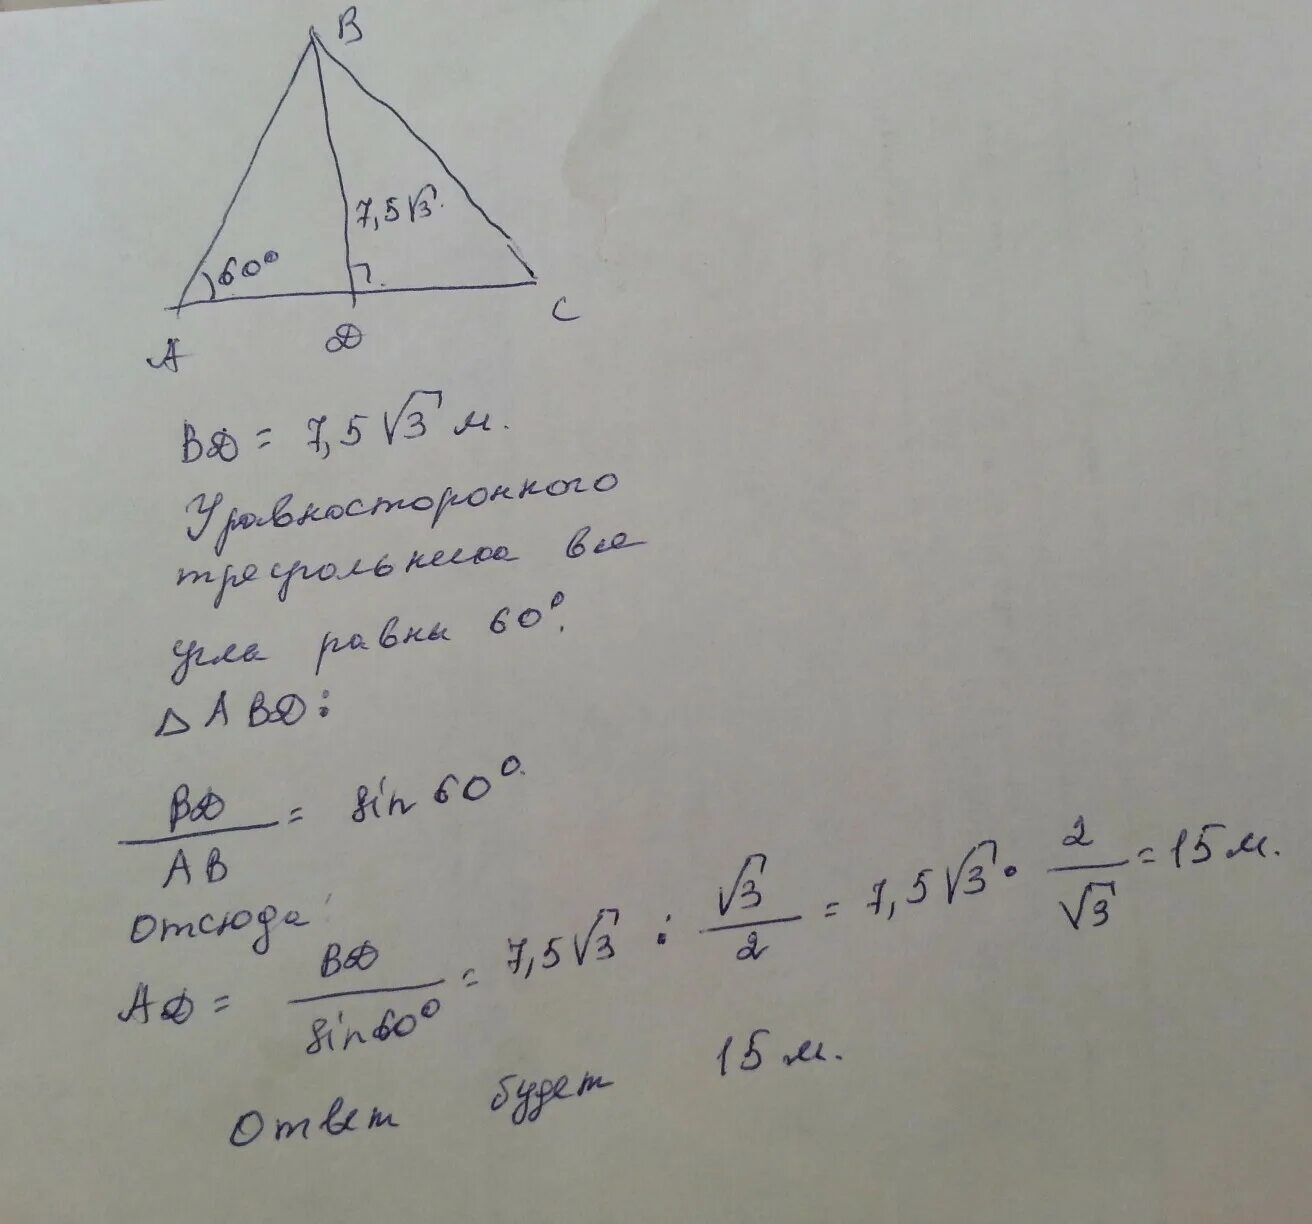 B
7,5√3
60°
A
D
C
BD = 7,5√3 м.
У равностороннего
треугольника все
угла равны 60°.
△ABD:
BD/AB = sin 60°
отсюда
AD = BD/sin60° = 7,5√3 : √3/2 = 7,5√3 · 2/√3 = 15 м.
Ответ будет 15 м.